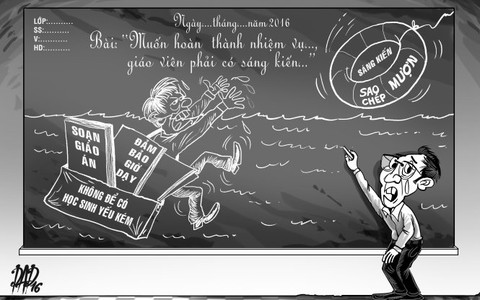 LỚP:..........
SS:..........
V:..........
HD:..........
Ngày....tháng....năm 2016
Bài: "Muốn hoàn thành nhiệm vụ...,
giáo viên phải có sáng kiến..."
SÁNG KIẾN
SAO
CHÉP
MƯỢN
SOẠN
GIÁO
ÁN
ĐẢM
BẢO
GIỜ
DẠY
KHÔNG ĐỂ CÓ
HỌC SINH YẾU KÉM
DAD
16